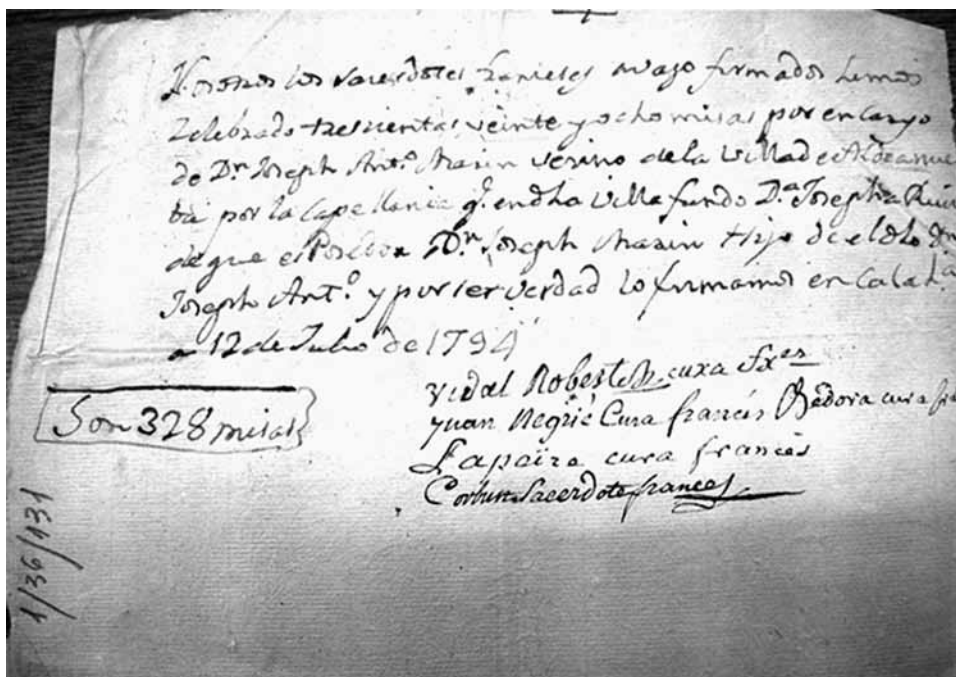 Nosotros los sacerdotes franceses avajo firmados hemos
Zelebrado trescientas veinte y ocho misas por encargo
de Dn. Joseph Anto. Marin vecino de la Villa de Aldeanue
ba por la Capellania q. en dha Villa fundo Da. Josepha Ruiz
de que es Posedor Dn. Joseph Marin Hijo de el dho Dn.
Joseph Anto. y por ser verdad lo firmamos en Calah.a
a 12 de Julio de 1794
Vidal cura fxes
Juan Negrié Cura francés cura
Son 328 misas
Lapaïre cura francés
Sacerdote frances
1/36/131